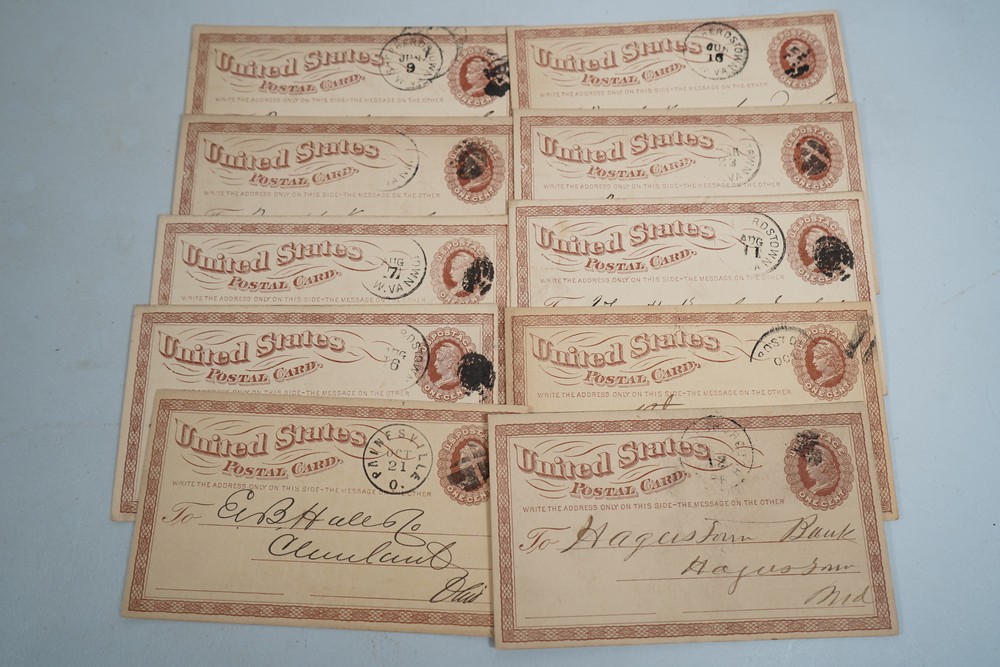 United States
POSTAL CARD.
WRITE THE ADDRESS ONLY ON THIS SIDE-THE MESSAGE ON THE OTHER
JUN
9
ONE CENT
United States
POSTAL CARD.
WRITE THE ADDRESS ONLY ON THIS SIDE-THE MESSAGE ON THE OTHER
JUN
16
W.VA
United States
POSTAL CARD.
WRITE THE ADDRESS ONLY ON THIS SIDE-THE MESSAGE ON THE OTHER
ONE CENT
To
United States
POSTAL CARD.
WRITE THE ADDRESS ONLY ON THIS SIDE-THE MESSAGE ON THE OTHER
U.S. POSTAGE
ONE CENT
United States
POSTAL CARD.
WRITE THE ADDRESS ONLY ON THIS SIDE-THE MESSAGE ON THE OTHER
AUG
7
W.VA
U.S. POSTAGE
United States
POSTAL CARD.
WRITE THE ADDRESS ONLY ON THIS SIDE-THE MESSAGE ON THE OTHER
RDSTOWN
AUG
11
U.S. POSTAGE
ONE CENT
To
United States
POSTAL CARD.
WRITE THE ADDRESS ONLY ON THIS SIDE-THE MESSAGE ON THE OTHER
RDSTOW
AUG
6
U.S. POSTAGE
ONE CENT
United States
POSTAL CARD.
WRITE THE ADDRESS ONLY ON THIS SIDE-THE MESSAGE ON THE OTHER
OC
U.S. POSTAGE
ONE CENT
United States
POSTAL CARD.
WRITE THE ADDRESS ONLY ON THIS SIDE-THE MESSAGE ON THE OTHER
PAINESVILLE O.
OCT
21
ONE CENT
To E. B. Hale & Co
Cleveland
Ohio
United States
POSTAL CARD.
WRITE THE ADDRESS ONLY ON THIS SIDE-THE MESSAGE ON THE OTHER
12
ONE CENT
To Hagerstown Bank
Hagerstown
Md